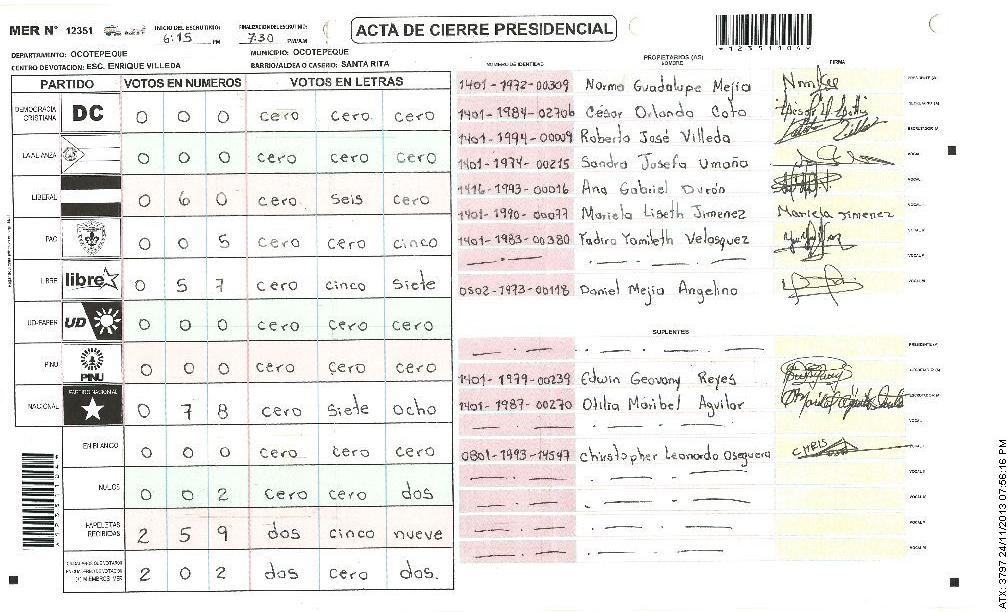 MER Nº 12351 INICIO DEL ESCRUTINIO: 6:15 PM FINALIZACION DEL ESCRUTINIO: 7:30 PM/AM ACTA DE CIERRE PRESIDENCIAL
DEPARTAMENTO: OCOTEPEQUE MUNICIPIO: OCOTEPEQUE
CENTRO DE VOTACION: ESC. ENRIQUE VILLEDA BARRIO/ALDEA O CASERIO: SANTA RITA
PARTIDO VOTOS EN NUMEROS VOTOS EN LETRAS
DEMOCRACIA CRISTIANA DC 0 0 0 cero cero cero
LA ALIANZA 0 0 0 cero cero cero
LIBERAL 0 6 0 cero seis cero
PAC 0 0 5 cero cero cinco
LIBRE libre 0 5 7 cero cinco siete
UD-FAPER UD 0 0 0 cero cero cero
PINU PINU 0 0 0 cero cero cero
NACIONAL PARTIDO NACIONAL 0 7 8 cero siete ocho
EN BLANCO 0 0 0 cero cero cero
NULOS 0 0 2 cero cero dos
PAPELETAS RECIBIDAS 2 5 9 dos cinco nueve
2 0 2 dos cero dos.
PROPIETARIOS (AS)
NUMERO DE IDENTIDAD NOMBRE FIRMA
1401-1972-00309 Norma Guadalupe Mejía PRESIDENTE (A)
1401-1984-02706 César Orlando Coto SECRETARIO (A)
1401-1994-00009 Roberto José Villeda ESCRUTADOR (A)
1401-1974-00215 Sandra Josefa Umaña VOCAL
1416-1993-00016 Ana Gabriel Durón VOCAL
1401-1990-00077 Mariela Lizeth Jimenez Mariela Jimenez VOCAL
1401-1983-00380 Yadira Yamileth Velasquez
0502-1973-00118 Daniel Mejía Angelino
SUPLENTES
PRESIDENTE (A)
1401-1979-00239 Edwin Geovany Reyes
1401-1987-00270 Otilia Maribel Aguilar
0801-1993-14547 Chirstopher Leonardo Oseguera CHRIS
ATX: 3797 24/11/2013 07:56:16 PM